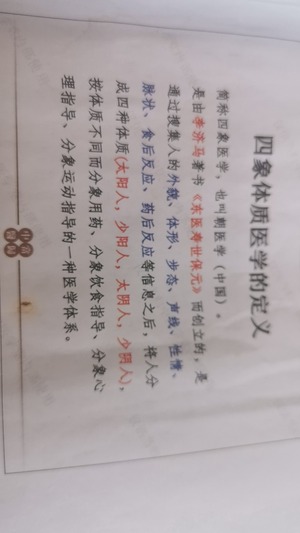 四象体质医学的定义
简称四象医学，也叫朝医学（中国）。
是由李济马著书《东医寿世保元》而创立的，是
通过搜集人的外貌、体形、步态、声线、性情、
脉状、食后反应、药后反应等信息之后，将人分
成四种体质(太阳人，少阳人，太阴人，少阴人)，
按体质不同而分象用药、分象饮食指导、分象心
理指导、分象运动指导的一种医学体系。